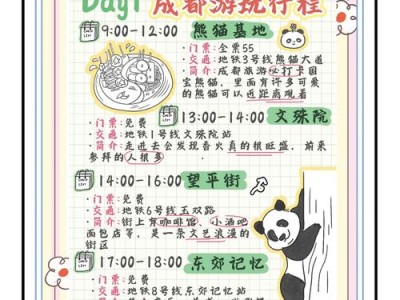 Day1 成都游玩行程
9:00-12:00 熊猫基地
·门票:全票55
·交通:地铁3号线熊猫大道
·简介:成都旅游必打卡国
宝熊猫,里面有许多可爱
的熊猫可以近距离观看
13:00-14:00 文殊院
·门票:免费
·交通:地铁1号线文殊院站
·简介:走进去会发现香火真的很旺盛,前来
参拜的人很多
14:00-16:00 望平街
·门票:免费
·交通:地铁6号线玉双路
·简介:街上有咖啡馆、小酒吧
面包店等,是一条文艺浪漫的
街区
17:00-18:00 东郊记忆
·门票:免费
·交通:地铁8号线东郊记忆站